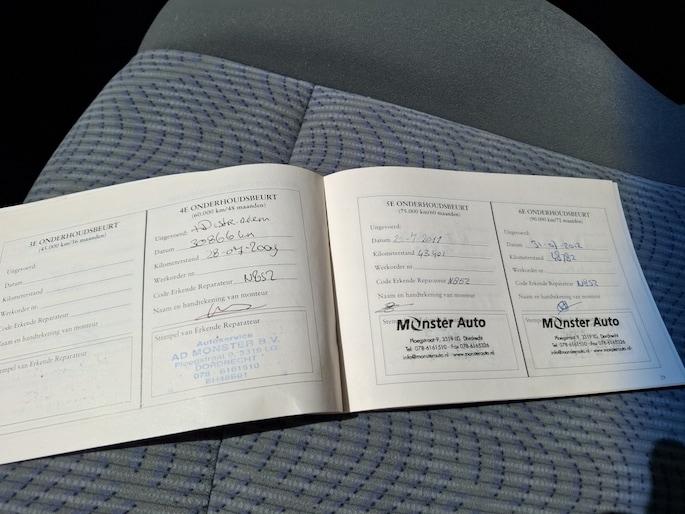 3E ONDERHOUDSBEURT
(45.000 km/36 maanden)
Uitgevoerd:
Datum
Kilometerstand
Werkorder nr.
Code Erkende Reparateur
Naam en handtekening van monteur
Stempel van Erkende Reparateur
4E ONDERHOUDSBEURT
(60.000 km/48 maanden)
Uitgevoerd:
Datum 30866 km
Kilometerstand 28-07-2009
Werkorder nr.
Code Erkende Reparateur NB52
Naam en handtekening van monteur
Stempel van Erkende Reparateur
Autoservice
AD MONSTER B.V.
Ploegstraat 9, 3319 LG
DORDRECHT
078 - 6161510
5E ONDERHOUDSBEURT
(75.000 km/60 maanden)
Uitgevoerd:
Datum 25-7-2011
Kilometerstand 43.401
Werkorder nr.
Code Erkende Reparateur NB52
Naam en handtekening van monteur
Monster Auto
Ploegstraat 9, 3319 LG, Dordrecht
Tel: 078-6161510 - Fax 078-6165326
info@monsterauto.nl - www.monsterauto.nl
6E ONDERHOUDSBEURT
(90.000 km/72 maanden)
Uitgevoerd:
Datum 31-07-2012
Kilometerstand 48782
Werkorder nr.
Code Erkende Reparateur NB52
Naam en handtekening van monteur
Monster Auto
Ploegstraat 9, 3319 LG, Dordrecht
Tel: 078-6161510 - Fax 078-6165326
info@monsterauto.nl - www.monsterauto.nl